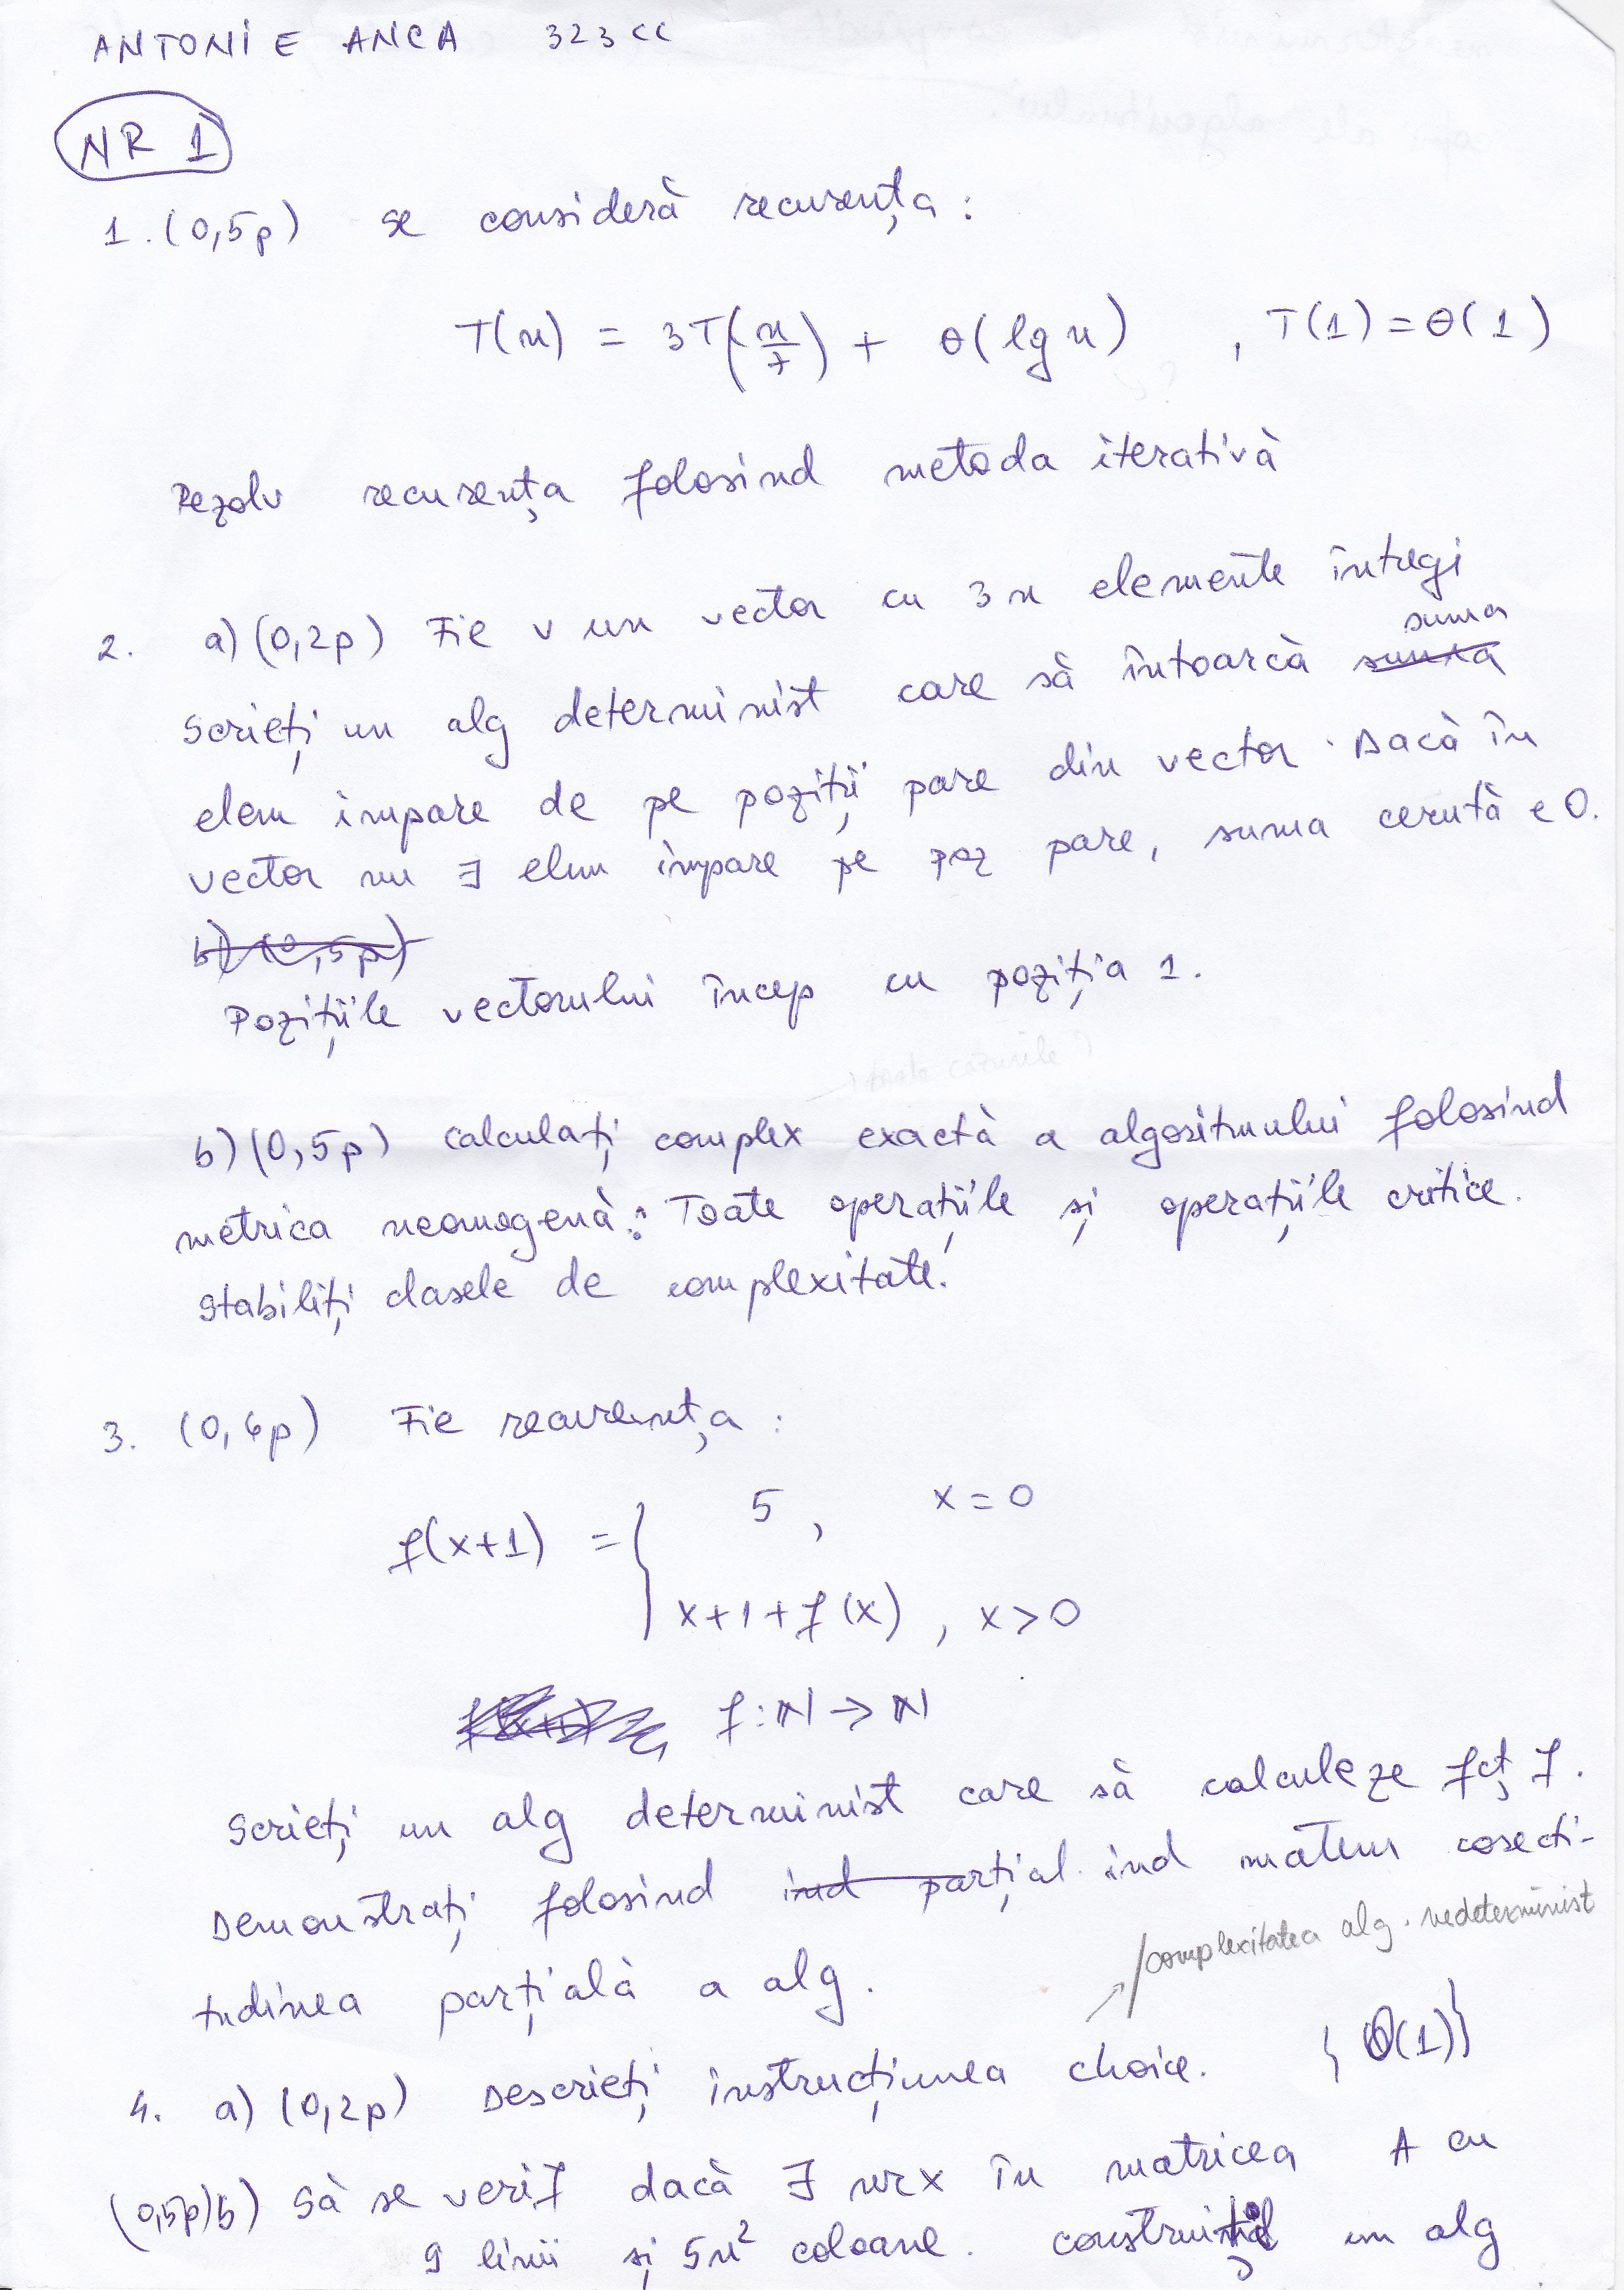 ANTONIE ANCA 323CC
NR 1
1. (0,5p) se consideră recurența:
T(n) = 3T(n/7) + θ(lg n) , T(1) = θ(1)
Rezolv recurența folosind metoda iterativă
2. a) (0,2p) Fie v un vector cu 3n elemente întregi
suma
Scrieți un alg determinist care să întoarcă suma
elem impare de pe poziții pare din vector. Dacă în
vector nu ∃ elem impare pe poz pare, suma cerută e 0.
b) (0,5p)
Pozițiile vectorului încep cu poziția 1.
b) (0,5p) Calculați complex exactă a algoritmului folosind
metrica neomogenă: Toate operațiile și operațiile critice.
Stabiliți clasele de complexitate.
3. (0,6p) Fie recurența:
f(x+1) = { 5 , x = 0
x+1+f(x) , x > 0
f: N → N
Scrieți un alg determinist care să calculeze fcț f.
Demonstrați folosind ind parțial ind matem corecti-
tudinea parțială a alg.
complexitatea alg. nedeterminist
4. a) (0,2p) Descrieți instrucțiunea choice. {θ(1)}
(0,5p) b) Să se verif dacă ∃ nr x în matricea A cu
9 linii și 5n² coloane. construiți un alg